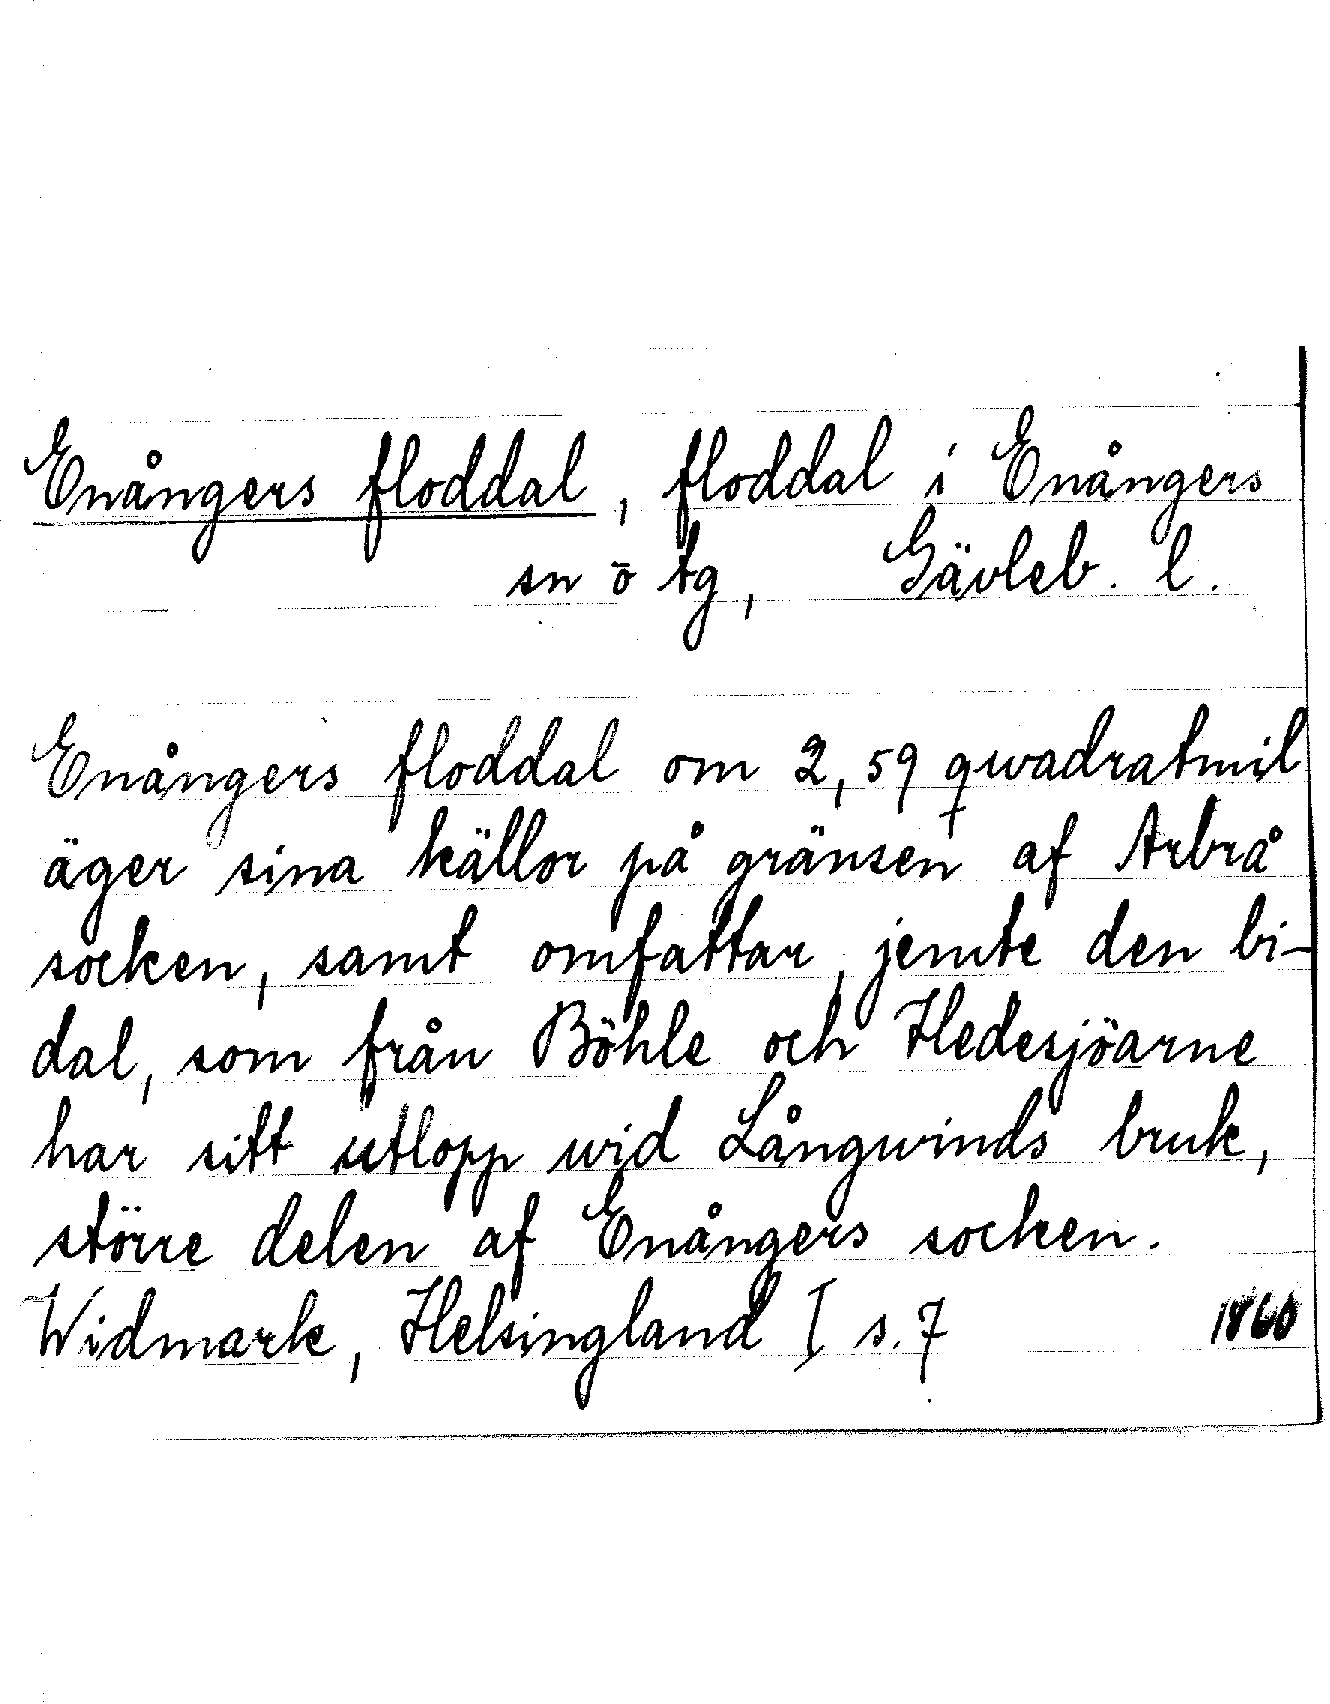 Enångers floddal, floddal i Enångers
sn ō tg, Gävleb. l.
Enångers floddal om 2,59 qwadratmil
äger sina källor på gränsen af Arbrå
socken, samt omfattar, jemte den bi-
dal, som från Böhle och Hedesjöarne
har sitt utlopp wid Långwinds bruk,
större delen af Enångers socken.
Widmark, Helsingland I s. 7 1860